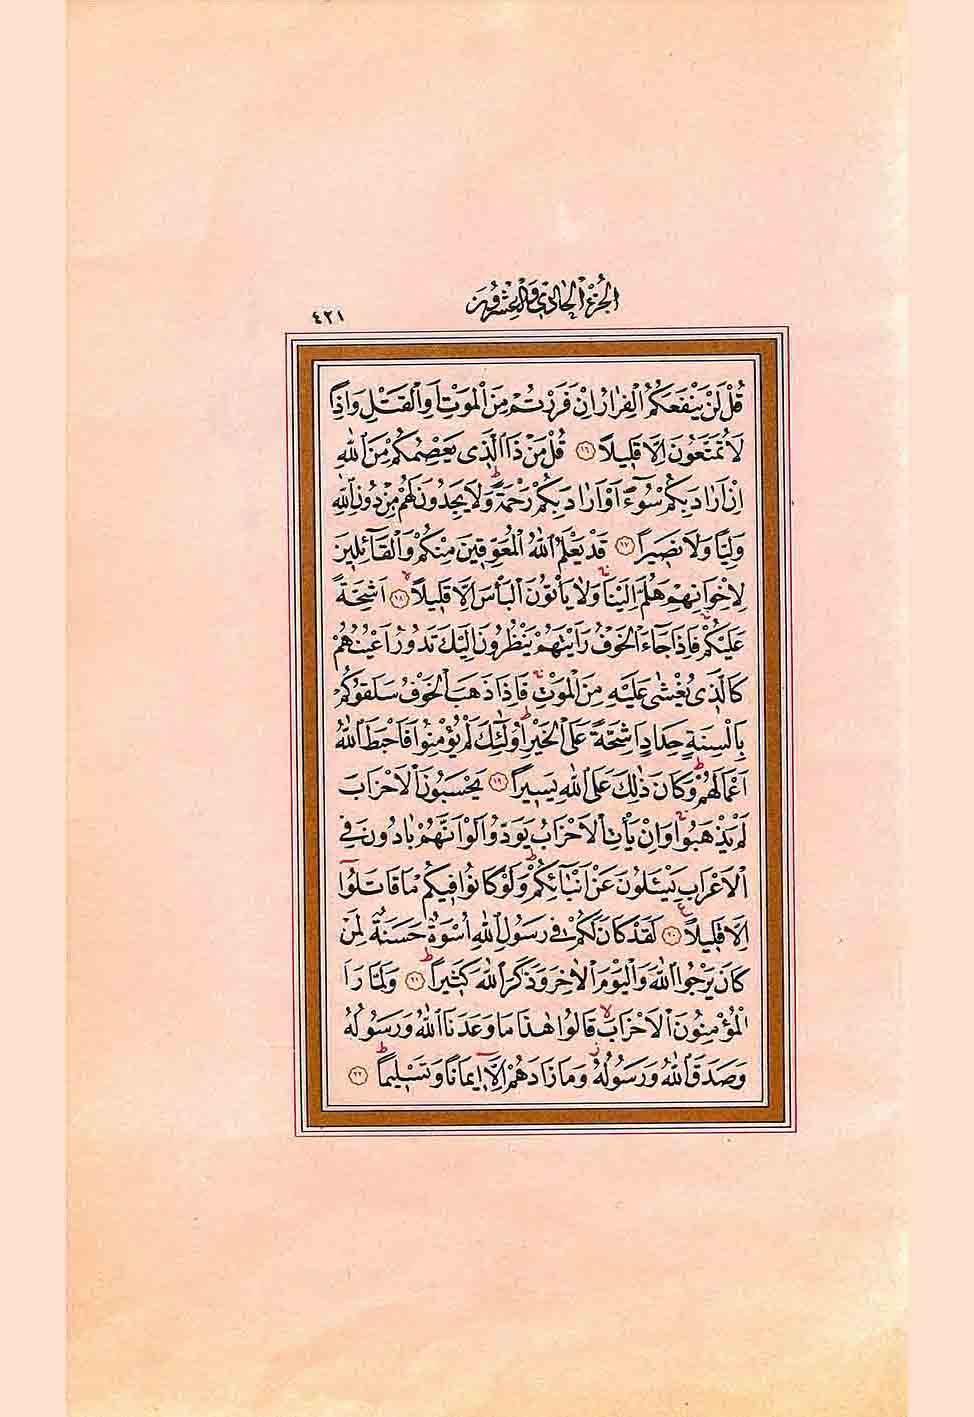 الجزء الحادي والعشرون
٤٢١
قُلْ لَنْ يَنْفَعَكُمُ الْفِرَارُ اِنْ فَرَرْتُمْ مِنَ الْمَوْتِ اَوِ الْقَتْلِ وَاِذًا
لَا تُمَتَّعُونَ اِلَّا قَلِيلًا ﴿١٦﴾ قُلْ مَنْ ذَا الَّذِي يَعْصِمُكُمْ مِنَ اللّٰهِ
اِنْ اَرَادَ بِكُمْ سُوٓءًا اَوْ اَرَادَ بِكُمْ رَحْمَةً وَلَا يَجِدُونَ لَهُمْ مِنْ دُونِ اللّٰهِ
وَلِيًّا وَلَا نَصِيرًا ﴿١٧﴾ قَدْ يَعْلَمُ اللّٰهُ الْمُعَوِّقِينَ مِنْكُمْ وَالْقَآئِلِينَ
لِاِخْوَانِهِمْ هَلُمَّ اِلَيْنَا وَلَا يَأْتُونَ الْبَأْسَ اِلَّا قَلِيلًا ﴿١٨﴾ اَشِحَّةً
عَلَيْكُمْ فَاِذَا جَآءَ الْخَوْفُ رَاَيْتَهُمْ يَنْظُرُونَ اِلَيْكَ تَدُورُ اَعْيُنُهُمْ
كَالَّذِي يُغْشٰى عَلَيْهِ مِنَ الْمَوْتِ فَاِذَا ذَهَبَ الْخَوْفُ سَلَقُوكُمْ
بِاَلْسِنَةٍ حِدَادٍ اَشِحَّةً عَلَى الْخَيْرِ اُولٰٓئِكَ لَمْ يُؤْمِنُوا فَاَحْبَطَ اللّٰهُ
اَعْمَالَهُمْ وَكَانَ ذٰلِكَ عَلَى اللّٰهِ يَسِيرًا ﴿١٩﴾ يَحْسَبُونَ الْاَحْزَابَ
لَمْ يَذْهَبُوا وَاِنْ يَأْتِ الْاَحْزَابُ يَوَدُّوا لَوْ اَنَّهُمْ بَادُونَ فِي
الْاَعْرَابِ يَسْـَٔلُونَ عَنْ اَنْبَآئِكُمْ وَلَوْ كَانُوا فِيكُمْ مَا قَاتَلُٓوا
اِلَّا قَلِيلًا ﴿٢٠﴾ لَقَدْ كَانَ لَكُمْ فِي رَسُولِ اللّٰهِ اُسْوَةٌ حَسَنَةٌ لِمَنْ
كَانَ يَرْجُوا اللّٰهَ وَالْيَوْمَ الْاٰخِرَ وَذَكَرَ اللّٰهَ كَثِيرًا ﴿٢١﴾ وَلَمَّا رَاَ
الْمُؤْمِنُونَ الْاَحْزَابَ قَالُوا هٰذَا مَا وَعَدَنَا اللّٰهُ وَرَسُولُهُ
وَصَدَقَ اللّٰهُ وَرَسُولُهُ وَمَا زَادَهُمْ اِلَّٓا اِيمَانًا وَتَسْلِيمًا ﴿٢٢﴾